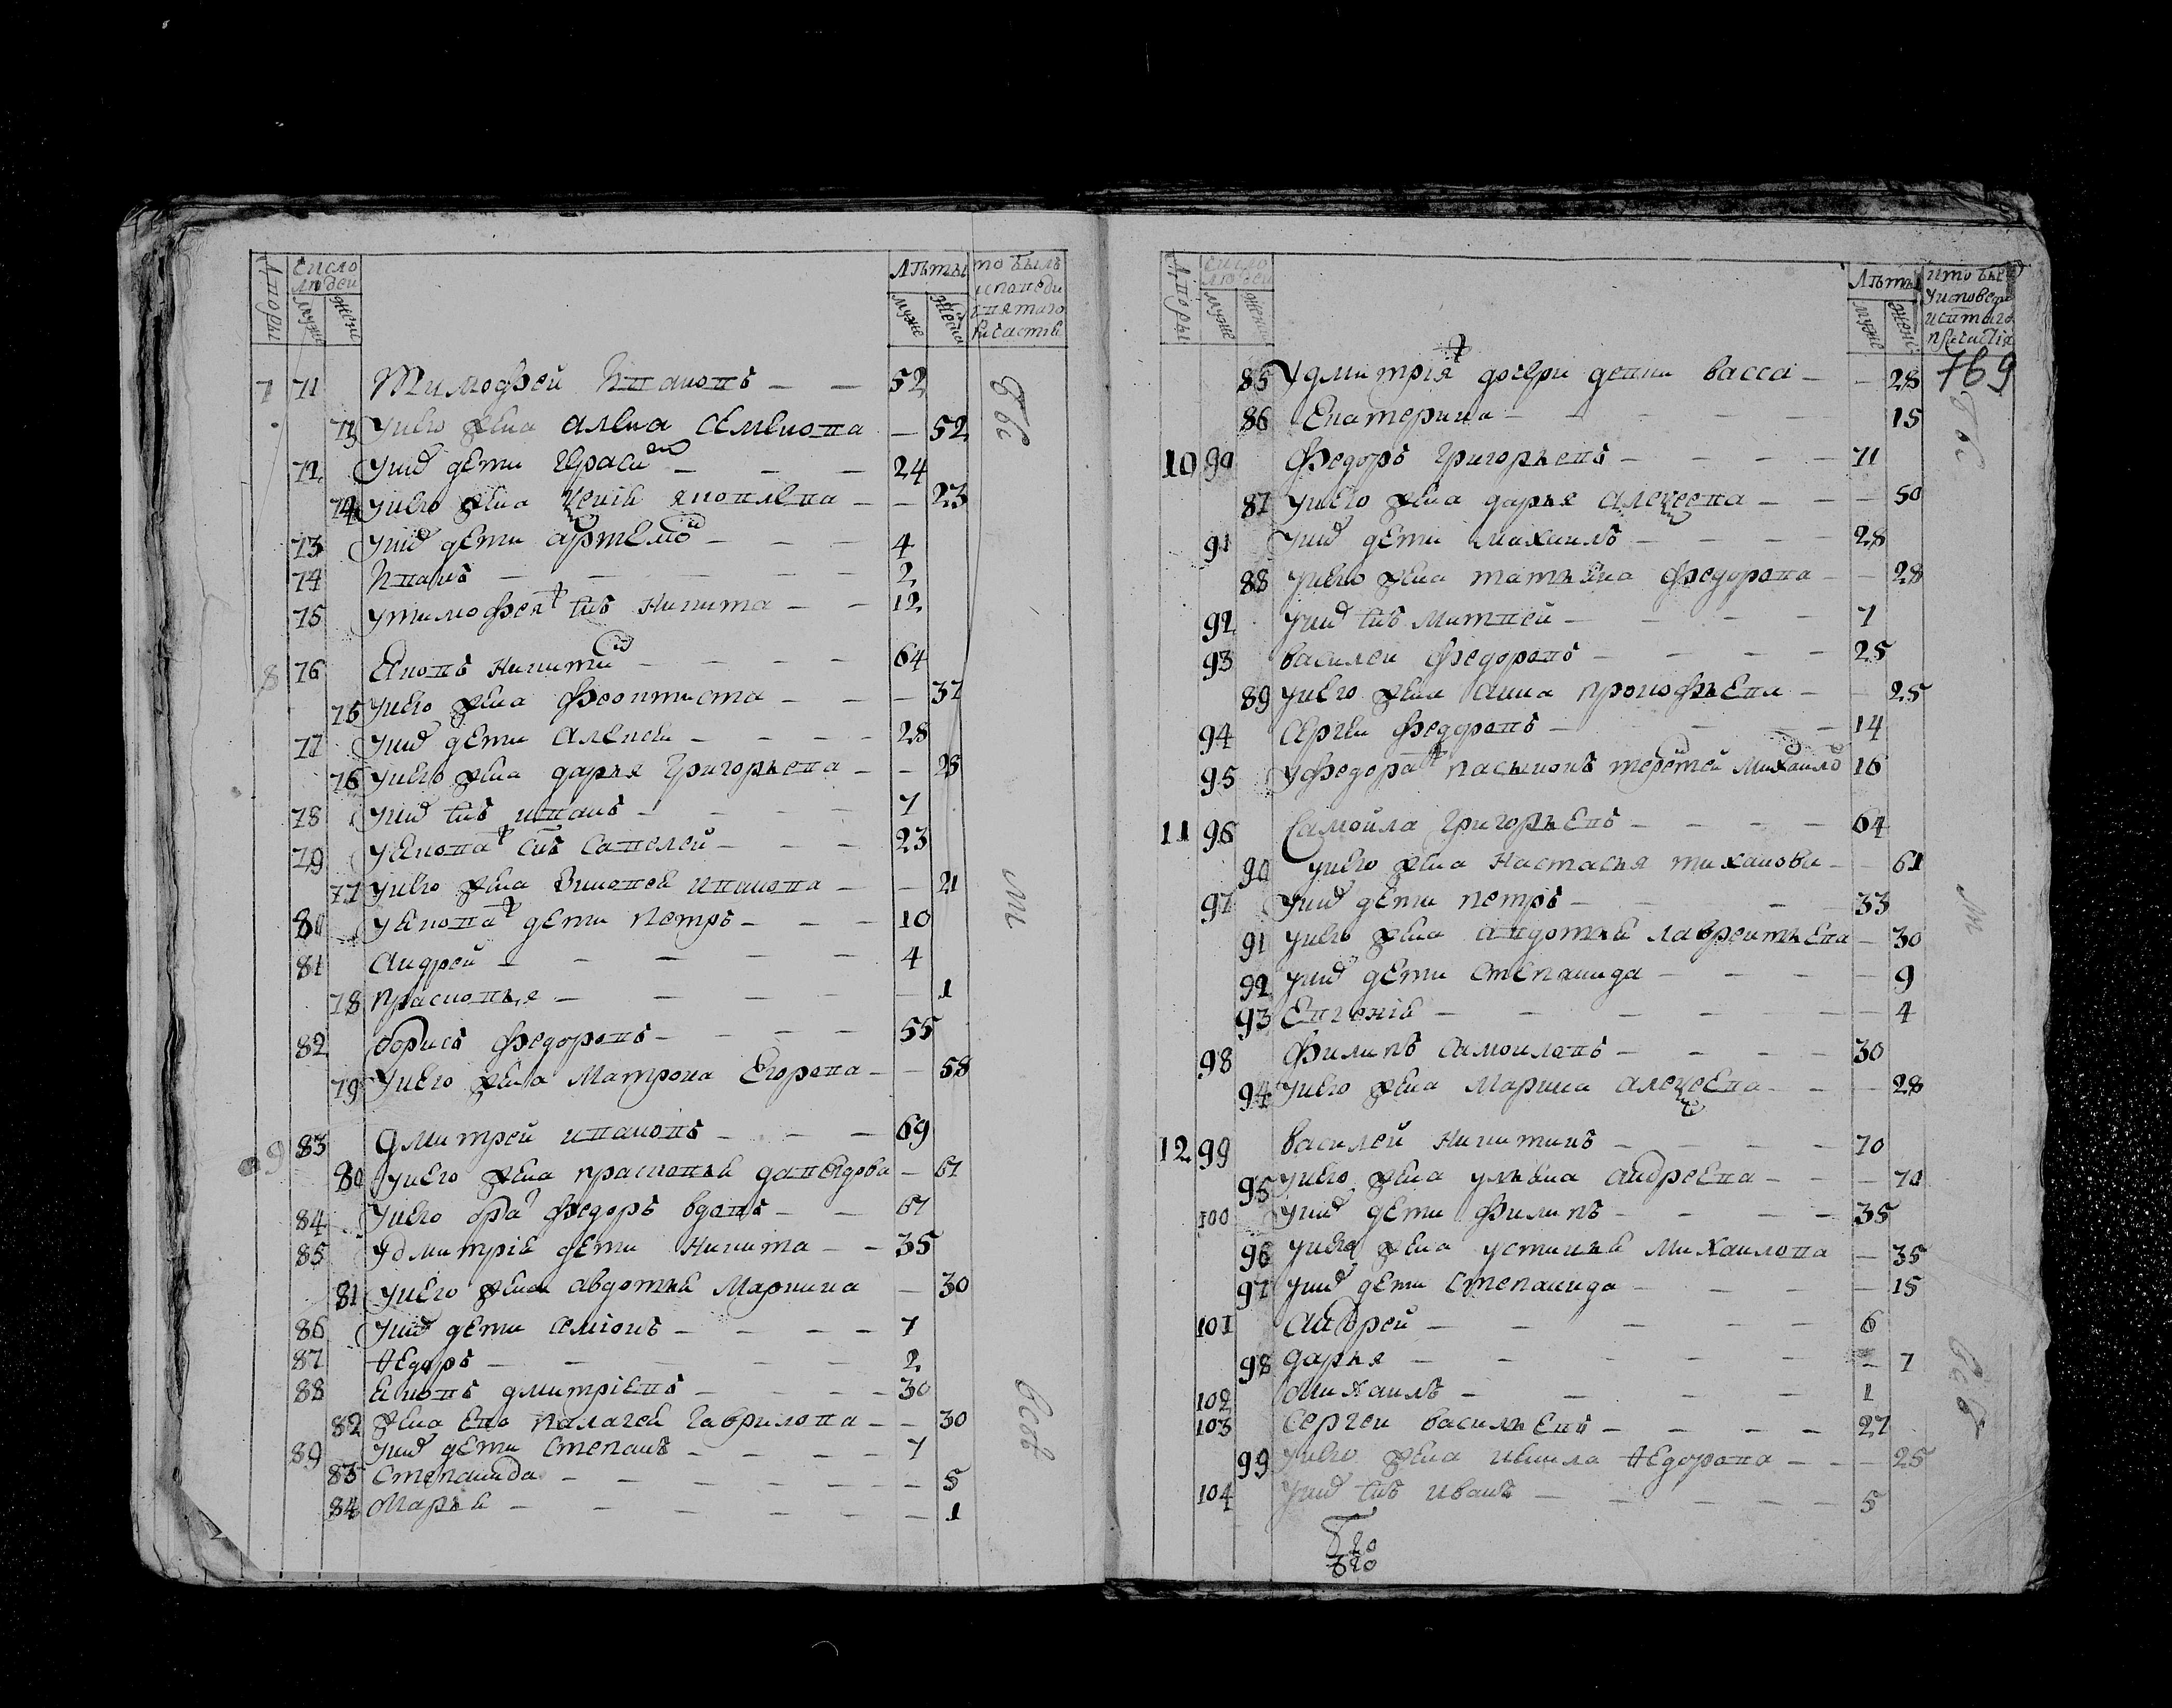 Дворы
Число людей
мужс
женс
Лѣты
мужс
женс
кто былъ
исповеди
святаго
причастия
7 71 Тимофей Ивановъ — — 52
73 У него жена алена семенова — 52
72 У нихъ дети Герасимъ — — — 24
74 У него жена ксения яковлева — — 23
73 У нихъ дети артемой — — — 4
74 Иванъ — — — — — 2
75 У тимофея снъ Никита — — 12
8 76 Яковъ Никитинъ — — — — 64
75 У него жена феоктиста — — — 37
77 У нихъ дети Алексей — — — — 28
76 У него жена дарья Григорьева — — 28
78 У нихъ снъ иванъ — — — — 7
79 У Якова снъ Савелей — — — 23
77 У него жена Зиновея иванова — — 21
80 У Якова дети петръ — — — 10
81 Андрей — — — — — 4
78 прасковья — — — — — 1
82 борисъ Федоровъ — — — — 55
79 У него жена Матрона Егорова — — 58
9 83 Дмитрей ивановъ — — — 69
80 У него жена прасковья давыдова — 61
84 У него братъ федоръ вдовъ — — 67
85 У дмитрия дети Никита — — 35
81 У него жена авдотья Маркина — 30
86 У нихъ дети семионъ — — — — 7
87 Ѳедоръ — — — — — 2
88 Яковъ дмитриевъ — — — — 30
82 жена ево палагея Гаврилова — — 30
89 У нихъ дети степанъ — — — — 7
83 Степанида — — — — — — 5
84 Марья — — — — — — 1
всѣ
Дворы
число людей
мужс
женс
Лѣты
мужс
женс
кто былъ
у исповеди
и святаго
причастия
769
85 У дмитрия дочери девки васса — — 28
86 Екатерина — — — — 15
10 90 Федоръ Григорьевъ — — — — 71
87 У него жена дарья алексеева — — — 50
91 У нихъ дети михаилъ — — — — 28
88 У него жена татьяна федорова — — 28
92 У нихъ снъ Матвей — — — — 7
93 василеи федоровъ — — — — 25
89 У него жена анна прокофьева — — 25
94 Сергеи федоровъ — — — — 14
95 У федора пасынокъ терентей михайловъ 16
11 96 Самойла Григорьевъ — — — — 64
90 У него жена Настасья — 61
97 У нихъ дети петръ — — — — 33
91 У него жена авдотья лаврентьева — 30
92 У нихъ дети степанида — — — — 9
93 Евгения — — — — — — 4
98 Филипъ самоиловъ — — — — 30
94 У него жена Марина алексеева — — — 28
12 99 василей Никитинъ — — — — 70
95 У него жена ульяна андреева — — — 70
100 У нихъ дети филипъ — — — — 35
96 У него жена устинья Михаилова — 35
97 У нихъ дети степанида — — — — 15
101 Андрей — — — — — 6
98 дарья — — — — — — 7
102 Михаилъ — — — — — 1
103 Сергеи васильевъ — — — — 27
99 У него жена Ѳедорова — — — 25
104 У нихъ снъ иванъ — — — — — 5